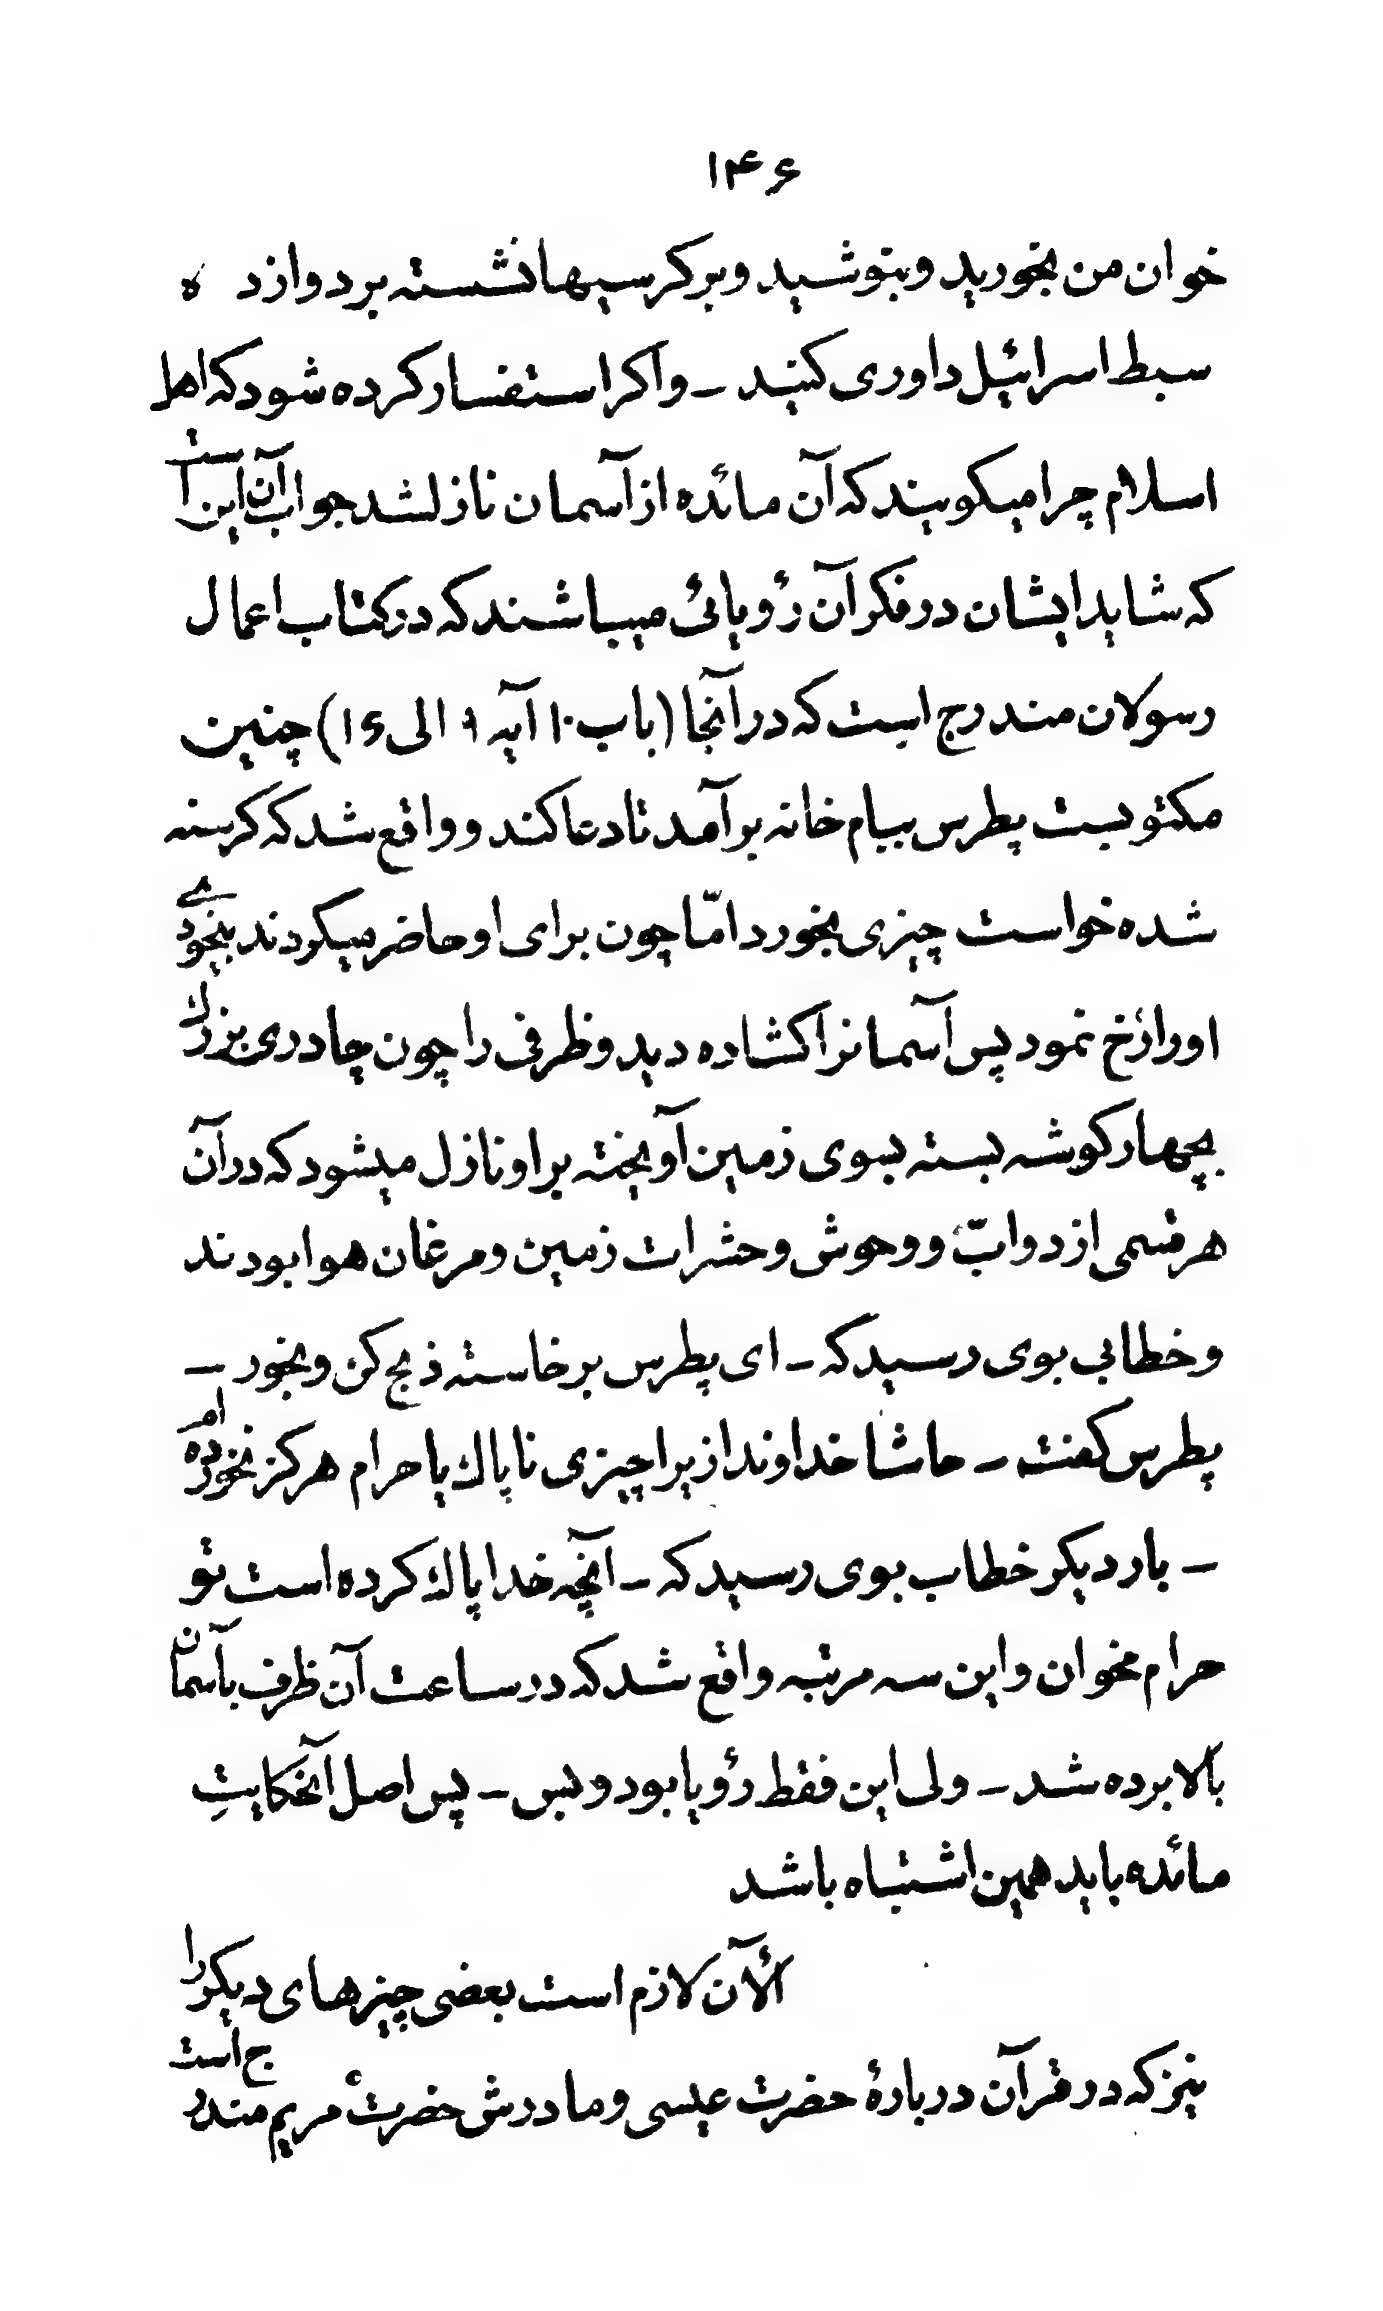 ۱۴۶
خوان من بخورید و بنوشید و بر کرسیها نشسته بر دوازده
سبط اسرائیل داوری کنید – و اکر استفسار کرده شود که اهل
اسلام چرا میکویند که آن مائده از آسمان نازلشد جواب آن این است
که شاید ایشان در فکر آن رؤیائی میباشند که در کتاب اعمال
رسولان مندرج است که در آنجا (باب ۱۰ آیه ۹ الی ۱۶) چنین
مکتوبست پطرس ببام خانه بر آمد تا دعا کند و واقع شد که کرسنه
شده خواست چیزی بخورد امّا چون برای او حاضر میکردند بیخودی
او را رخ نمود پس آسمانرا کشاده دید و ظرفی را چون چادری بزرك
بچهار کوشه بسته بسوی زمین آویخته بر او نازل میشود که در آن
هر قسمی از دوابّ و وحوش و حشرات زمین و مرغان هوا بودند
و خطابی بوی رسید که – ای پطرس برخاسته ذبح کن و بخور –
پطرس کفت – حاشا خداوندا زیرا چیزی ناپاك یا حرام هرکز نخورده ام
– بار دیکر خطاب بوی رسید که – آنچه خدا پاك کرده است تو
حرام مخوان و این سه مرتبه واقع شد که در ساعت آن ظرف بآسمان
بالا برده شد – ولی این فقط رؤیا بود و بس – پس اصل آنحکایتِ
مائده باید همین اشتباه باشد
الٔآن لازم است بعضی چیزهای دیکر را
نیز که در قرآن دربارۀ حضرت عیسی و مادرش حضرت مریم مندرج است